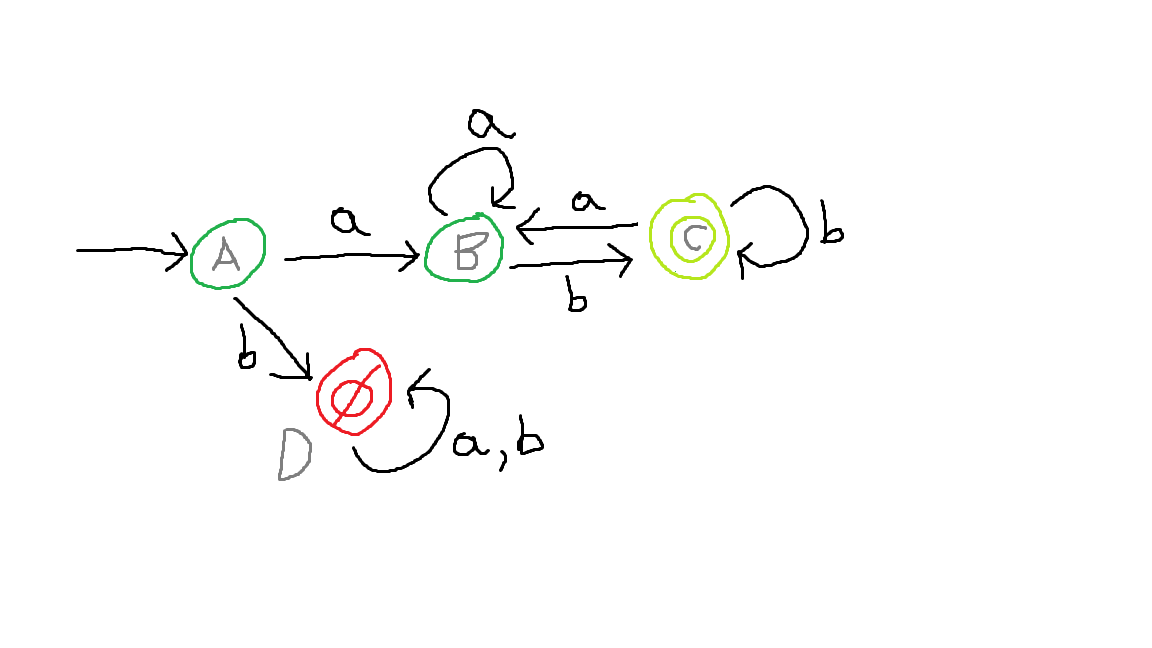 a
a
a
A
B
C
b
b
b
Ø
D
a, b